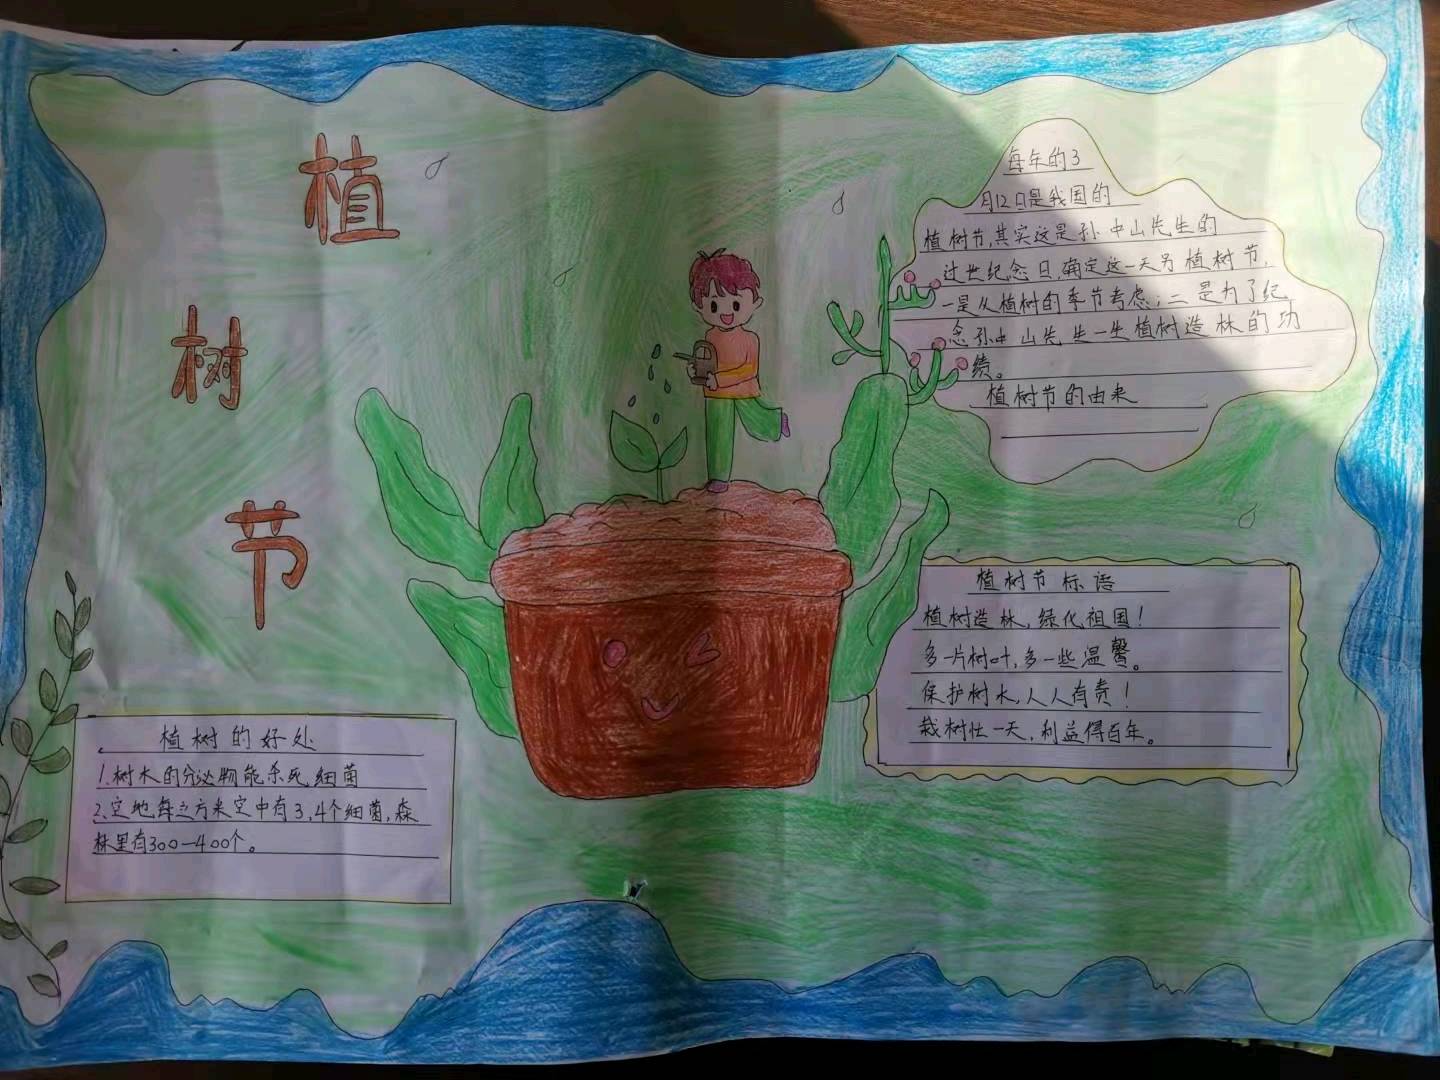 植
树
节
每年的3
月12日是我国的
植树节,其实这是孙中山先生的
过世纪念日,确定这一天另植树节,
一是从植树的季节考虑;二是为了纪
念孙中山先生一生植树造林的功
绩。
植树节的由来
植树节标语
植树造林,绿化祖国!
多一片树叶,多一些温馨。
保护树木,人人有责!
栽树忙一天,利益得百年。
植树的好处
1.树木的分泌物能杀死细菌
2.空地每立方米空中有3,4个细菌,森
林里有300—400个。